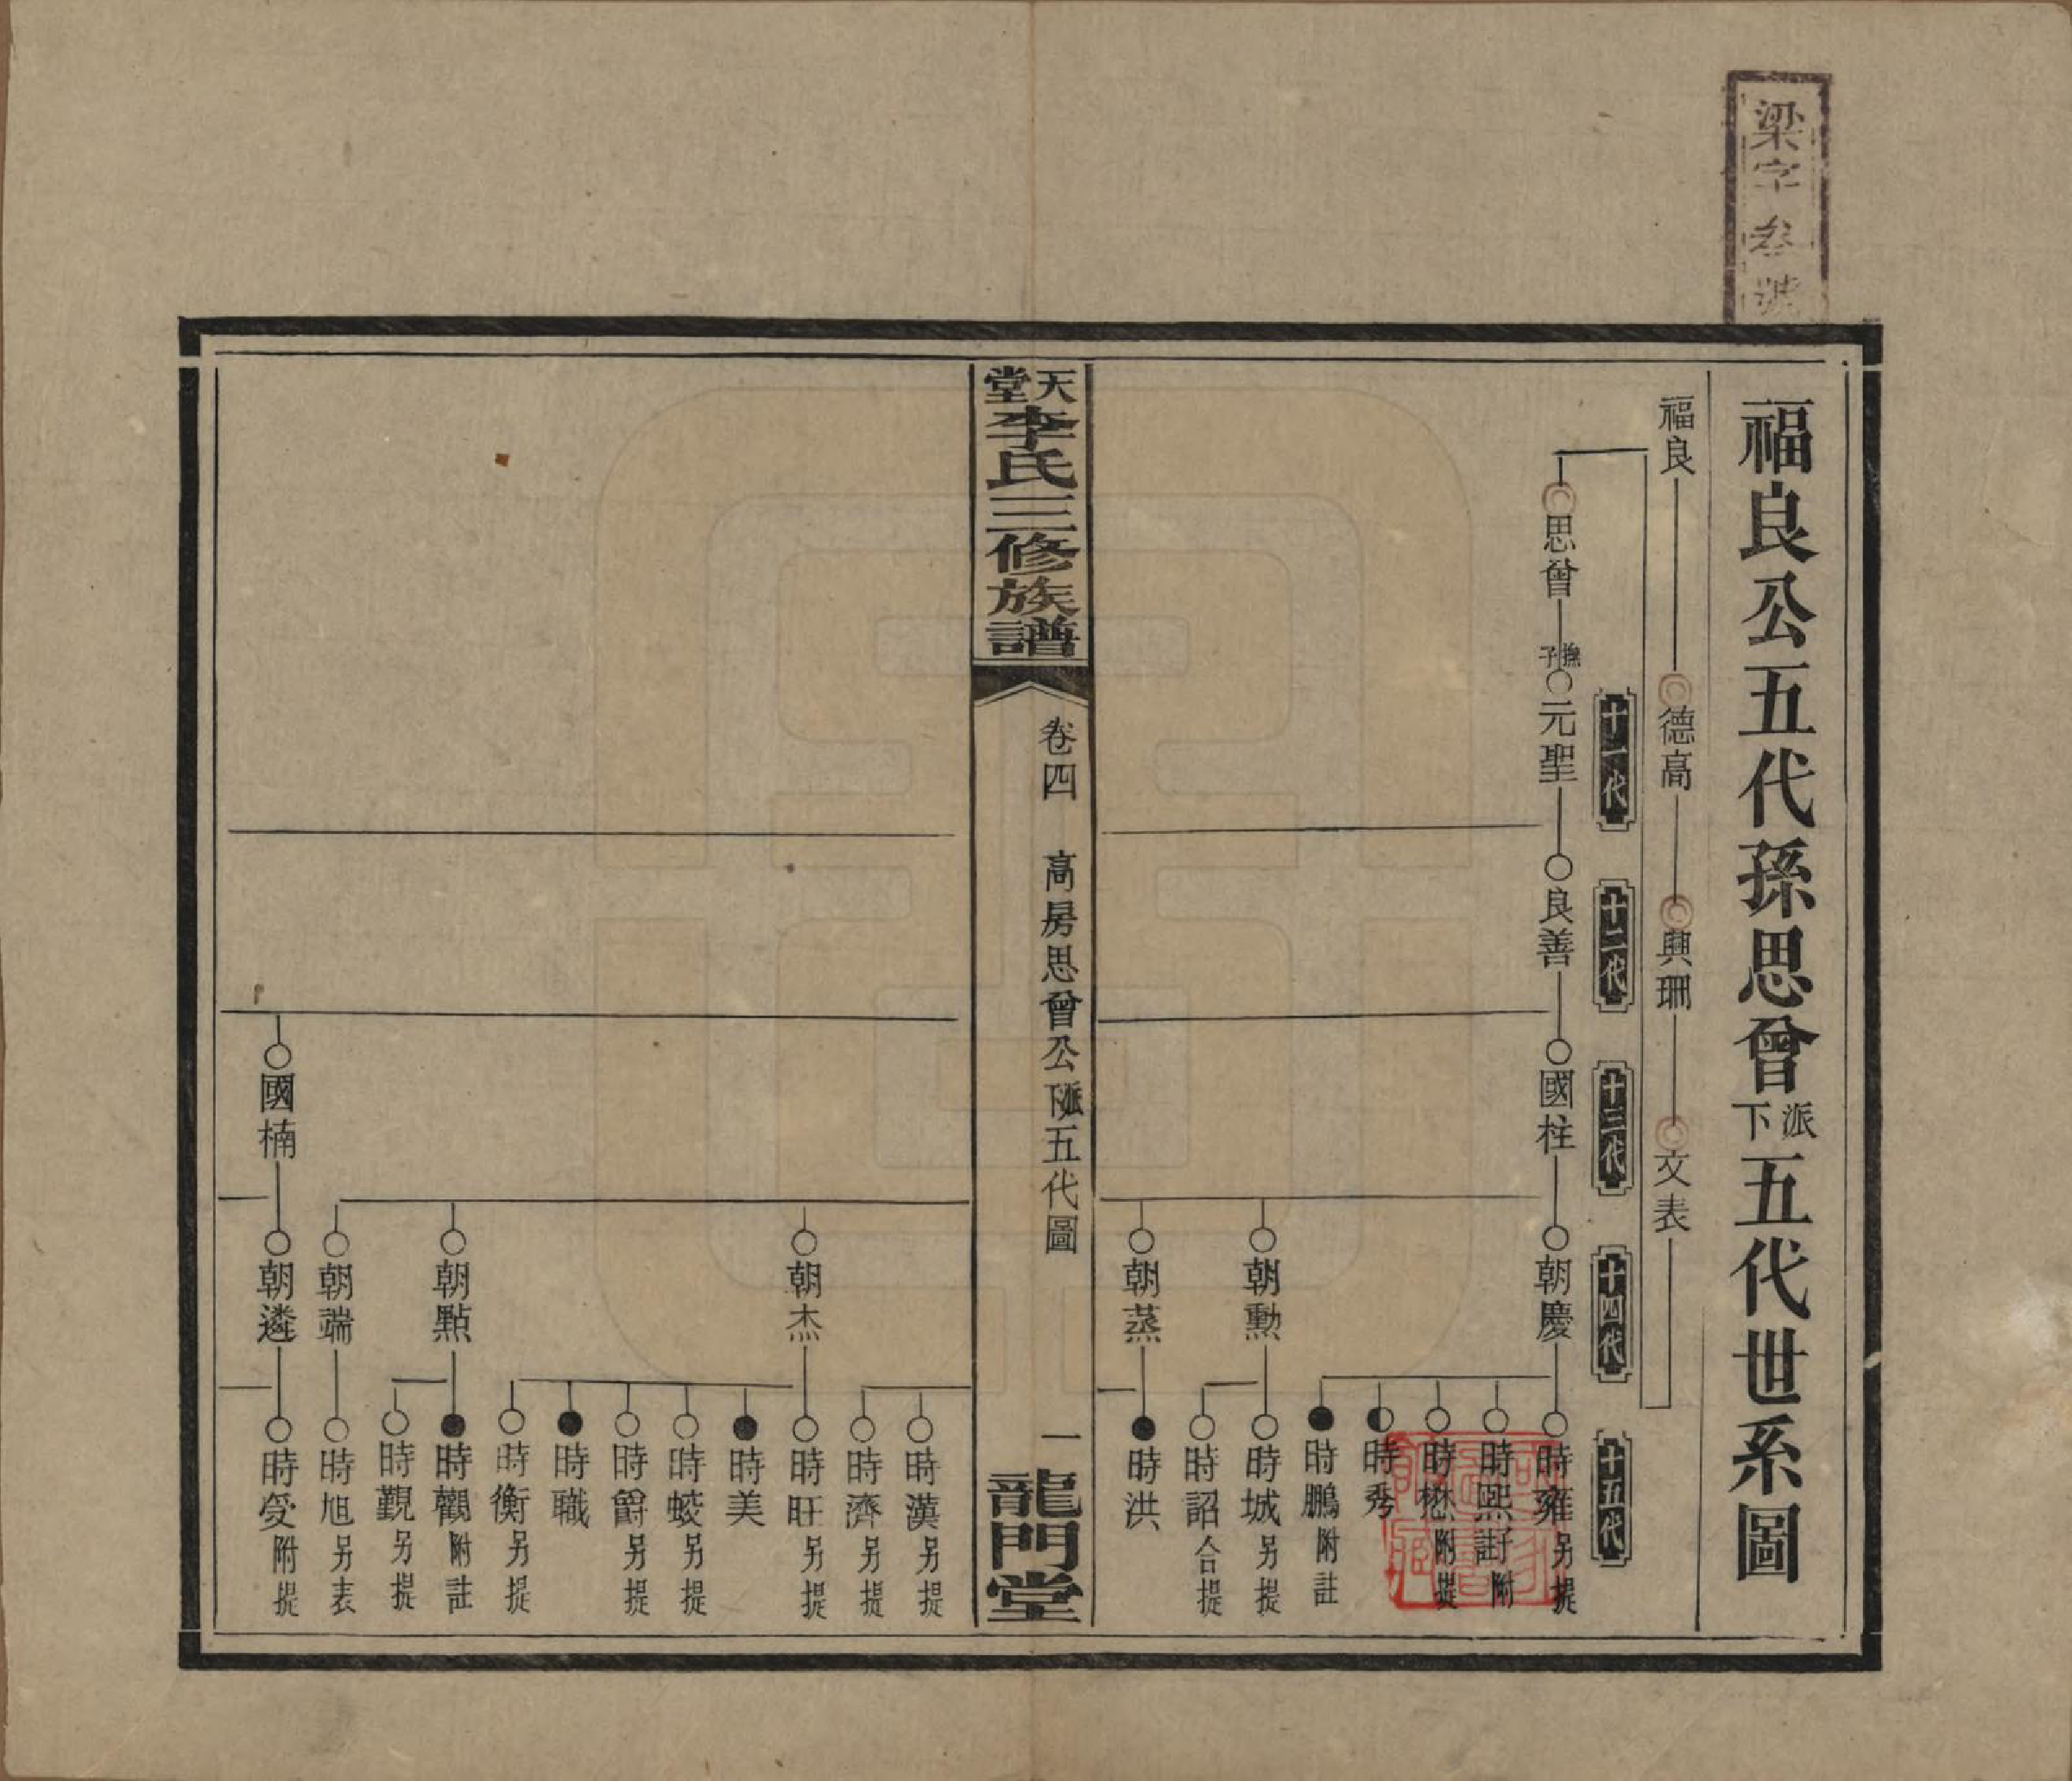 梁字叁號
福良公五代孫思曾派下五代世系圖
福良 德高 興珊 文表
十一代 十二代 十三代 十四代 十五代
思曾 撫子 元聖 良善 國柱 朝慶 時雍 另提
時熙 附註
時懋 附提
時秀
時鵬 附註
朝勳 時城 另提
時詔 合提
朝蒸 時洪
天堂李氏三修族譜 卷四 高房思曾公派下五代圖 一 龍門堂
時漢 另提
時濟 另提
朝杰 時旺 另提
時美
時蛟 另提
時爵 另提
時職
時衡 另提
朝點 時觀 附註
時覲 另提
朝端 時旭 另表
國楠 朝遴 時受 附提